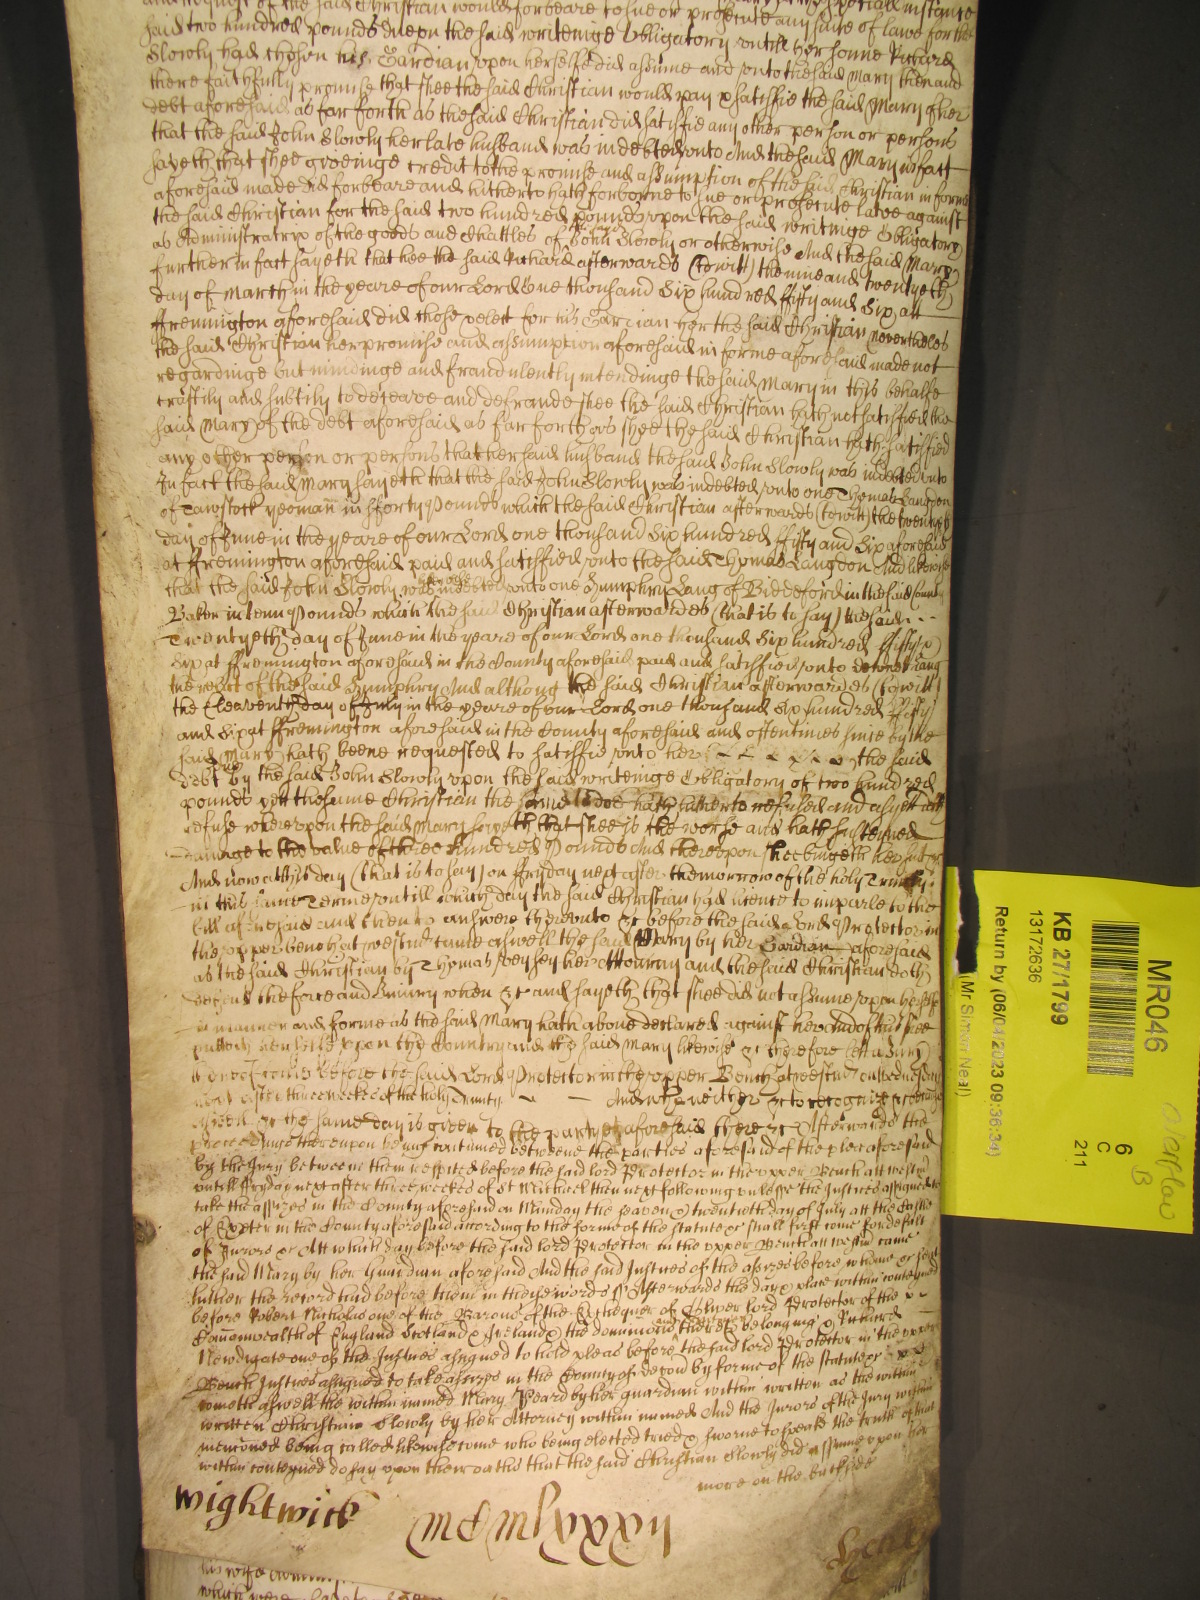 and request of the said Christian would forbeare to sue or prosecute any suite of lawe for the
said two hundred pounds due on the said writeinge Obligatory untill her sonne Richard
Slowly had chosen his Gardian upon herselfe did assume and unto the said Mary then and
there faithfully promise that shee the said Christian would pay & satisfie the said Mary of her
debt aforesaid as far forth as the said Christian did satisfie any other person or persons
that the said John Slowly her late husband was indebted unto And the said Mary in fact
sayeth that shee giveinge credit to the promise and assumption of the said Christian in forme
aforesaid made did forbeare and hitherto hath forborne to sue or prosecute lawe against
the said Christian for the said two hundred pounds upon the said writinge Obligatory
as Administratrix of the goods and Chattles of the said John Slowly or otherwise And the said Mary
further in fact sayeth that hee the said Richard afterwards (to witt) the nine and twentyeth
day of March in the yeare of our Lord One thousand Six hundred fifty and Six att
ffremington aforesaid did chose & elect for his Gardian her the said Christian Neverthelesse
the said Christian her promise and assumption aforesaid in forme aforesaid made not
regardinge but mindinge and fraudulently intendinge the said Mary in this behalfe
craftily and subtily to deceave and defraude shee the said Christian hath not satisfied the
said Mary of the debt aforesaid as far forth as shee the said Christian hath satisfied
any other person or persons that her said husband the said John Slowly was indebted unto
In fact the said Mary sayeth that the said John Slowly was indebted unto one Thomas Langdon
of Tawstock yeoman in fforty Pounds which the said Christian afterwards (to witt) the twentyeth
day of June in the yeare of our Lord one thousand Six hundred ffifty and Six aforesaid
at ffremington aforesaid paid and satisfied unto the said Thomas Langdon And likewise
that the said John Slowly was indebted unto one Humphry Lang of Biddeford in the said County
Baker in tenn Pounds which the said Christian afterwardes (that is to say) the said
Twentyeth day of June in the yeare of our Lord one thousand Six hundred ffifty &
Six at ffremington aforesaid in the County aforesaid paid and satisfied unto Lang
the relict of the said Humphry And although the said Christian afterwardes (to witt)
the Eleaventh day of July in the yeare of our Lord one thousand Six hundred ffifty
and Six at ffremington aforesaid in the County aforesaid and oftentimes since by the
said Mary hath beene requested to satisfie unto her the said
debt due by the said John Slowly upon the said writeinge Obligatory of two hundred
pounds yett the same Christian the same to doe hath hitherto refused and as yett doth
refuse whereupon the said Mary sayeth that shee is the worse and hath susteyned
damage to the value of three hundred Pounds And thereupon shee bringeth her suite
And now at this day (that is to say) on ffryday next after the morrow of the holy Trinity
in this same Terme untill which day the said Christian had licence to imparle to the
bill aforesaid and then to answere thereunto &c before the said Lord Protector in
the upper bench at westmr came aswell the said Mary by her Gardian aforesaid
as the said Christian by Thomas her Attorny and the said Christian doth
defend the force and Iniury when &c and sayeth that shee did not assume upon herselfe
in manner and forme as the said Mary hath above declared against her And of this shee
putteth herselfe upon the Country and the said Mary likewise &c therefore lett a Jury
before the said Lord Protector in the upper Bench at westmr on Wednesday
next after three weekes of the holy Trinity And who neither &c to recognize
&c the same day is given to the partyes aforesaid there &c Afterwards the
processe thereupon being continued betweene the parties aforesaid of the plea aforesaid
by the Jury betweene them respited before the said lord Protector in the upper Bench att westmr
untill ffryday next after three weekes of St Michael then next following unlesse the Justices assigned to
take the assizes in the County aforesaid on Munday the seaven & twentieth day of July att the Castle
of Exeter in the County aforesaid according to the forme of the statute &c shall first come for default
of Jurors &c Att which day before the said lord Protector in the upper Bench att westmr came
the said Mary by her Guardian aforesaid And the said Justices of the assizes before whome &c sent
hither the record had before them in these words ss Afterwards the day & place within conteyned
before Robert Nicholas one of the Barons of the Exchequer of Oliver lord Protector of the
Comonwealth of England Scotland & Ireland & the dominions thereto belonging & Richard
Newdigate one of the Justices assigned to hold pleas before the said lord Protector in the upper
Bench Justices assigned to take assizes in the County of devon by forme of the statute &c
cometh aswell the within named Mary Beard by her guardian within written as the within
written Christian Slowly by her Attorney within named And the Jurors of the Jury within
mencioned being called likewise come who being elected tried & sworne to speake the truth of that
within conteyned do say upon their oathes that the said Christian Slowly did assume upon her
more on the backside
Wightwick
MR046
KB 27/1799
13172636
Return by (06/04/2023 09:38:34)
(Mr Simon Neal)
6
C
211
B